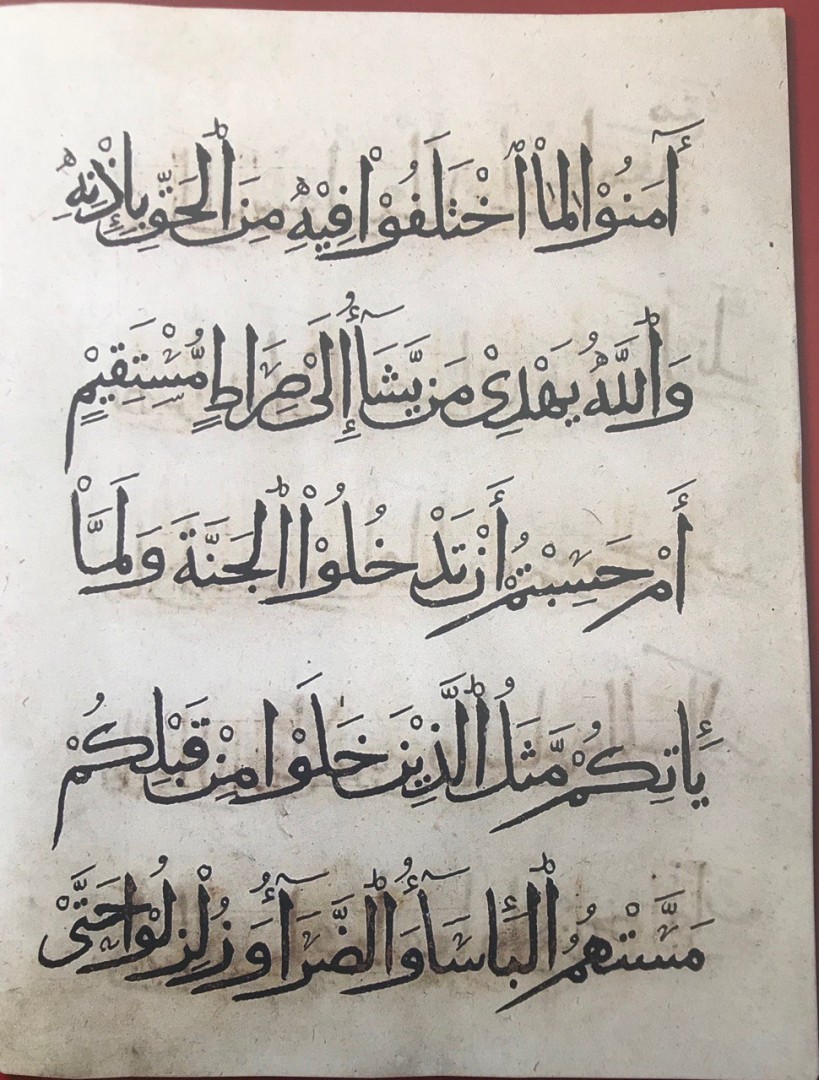 أٰمَنُوْا لِمَا اْخْتَلَفُوْا فِيْهِ مِنَ الْحَقِّ بِإِذْنِهِ
وَاللَّهُ يَهْدِيْ مَنْ يَّشَآءُ إِلَىْ صِرَاطٍ مُّسْتَقِيْمٍ
أَمْ حَسِبْتُمْ أَنْ تَدْخُلُوْا الْجَنَّةَ وَلَمَّا
يَأْتِكُمْ مَّثَلُ الَّذِيْنَ خَلَوْا مِنْ قَبْلِكُمْ
مَسَّتْهُمُ الْبَأْسَآءُ وَالضَّرَّآءُ وَزُلْزِلُوْا حَتَّىْ